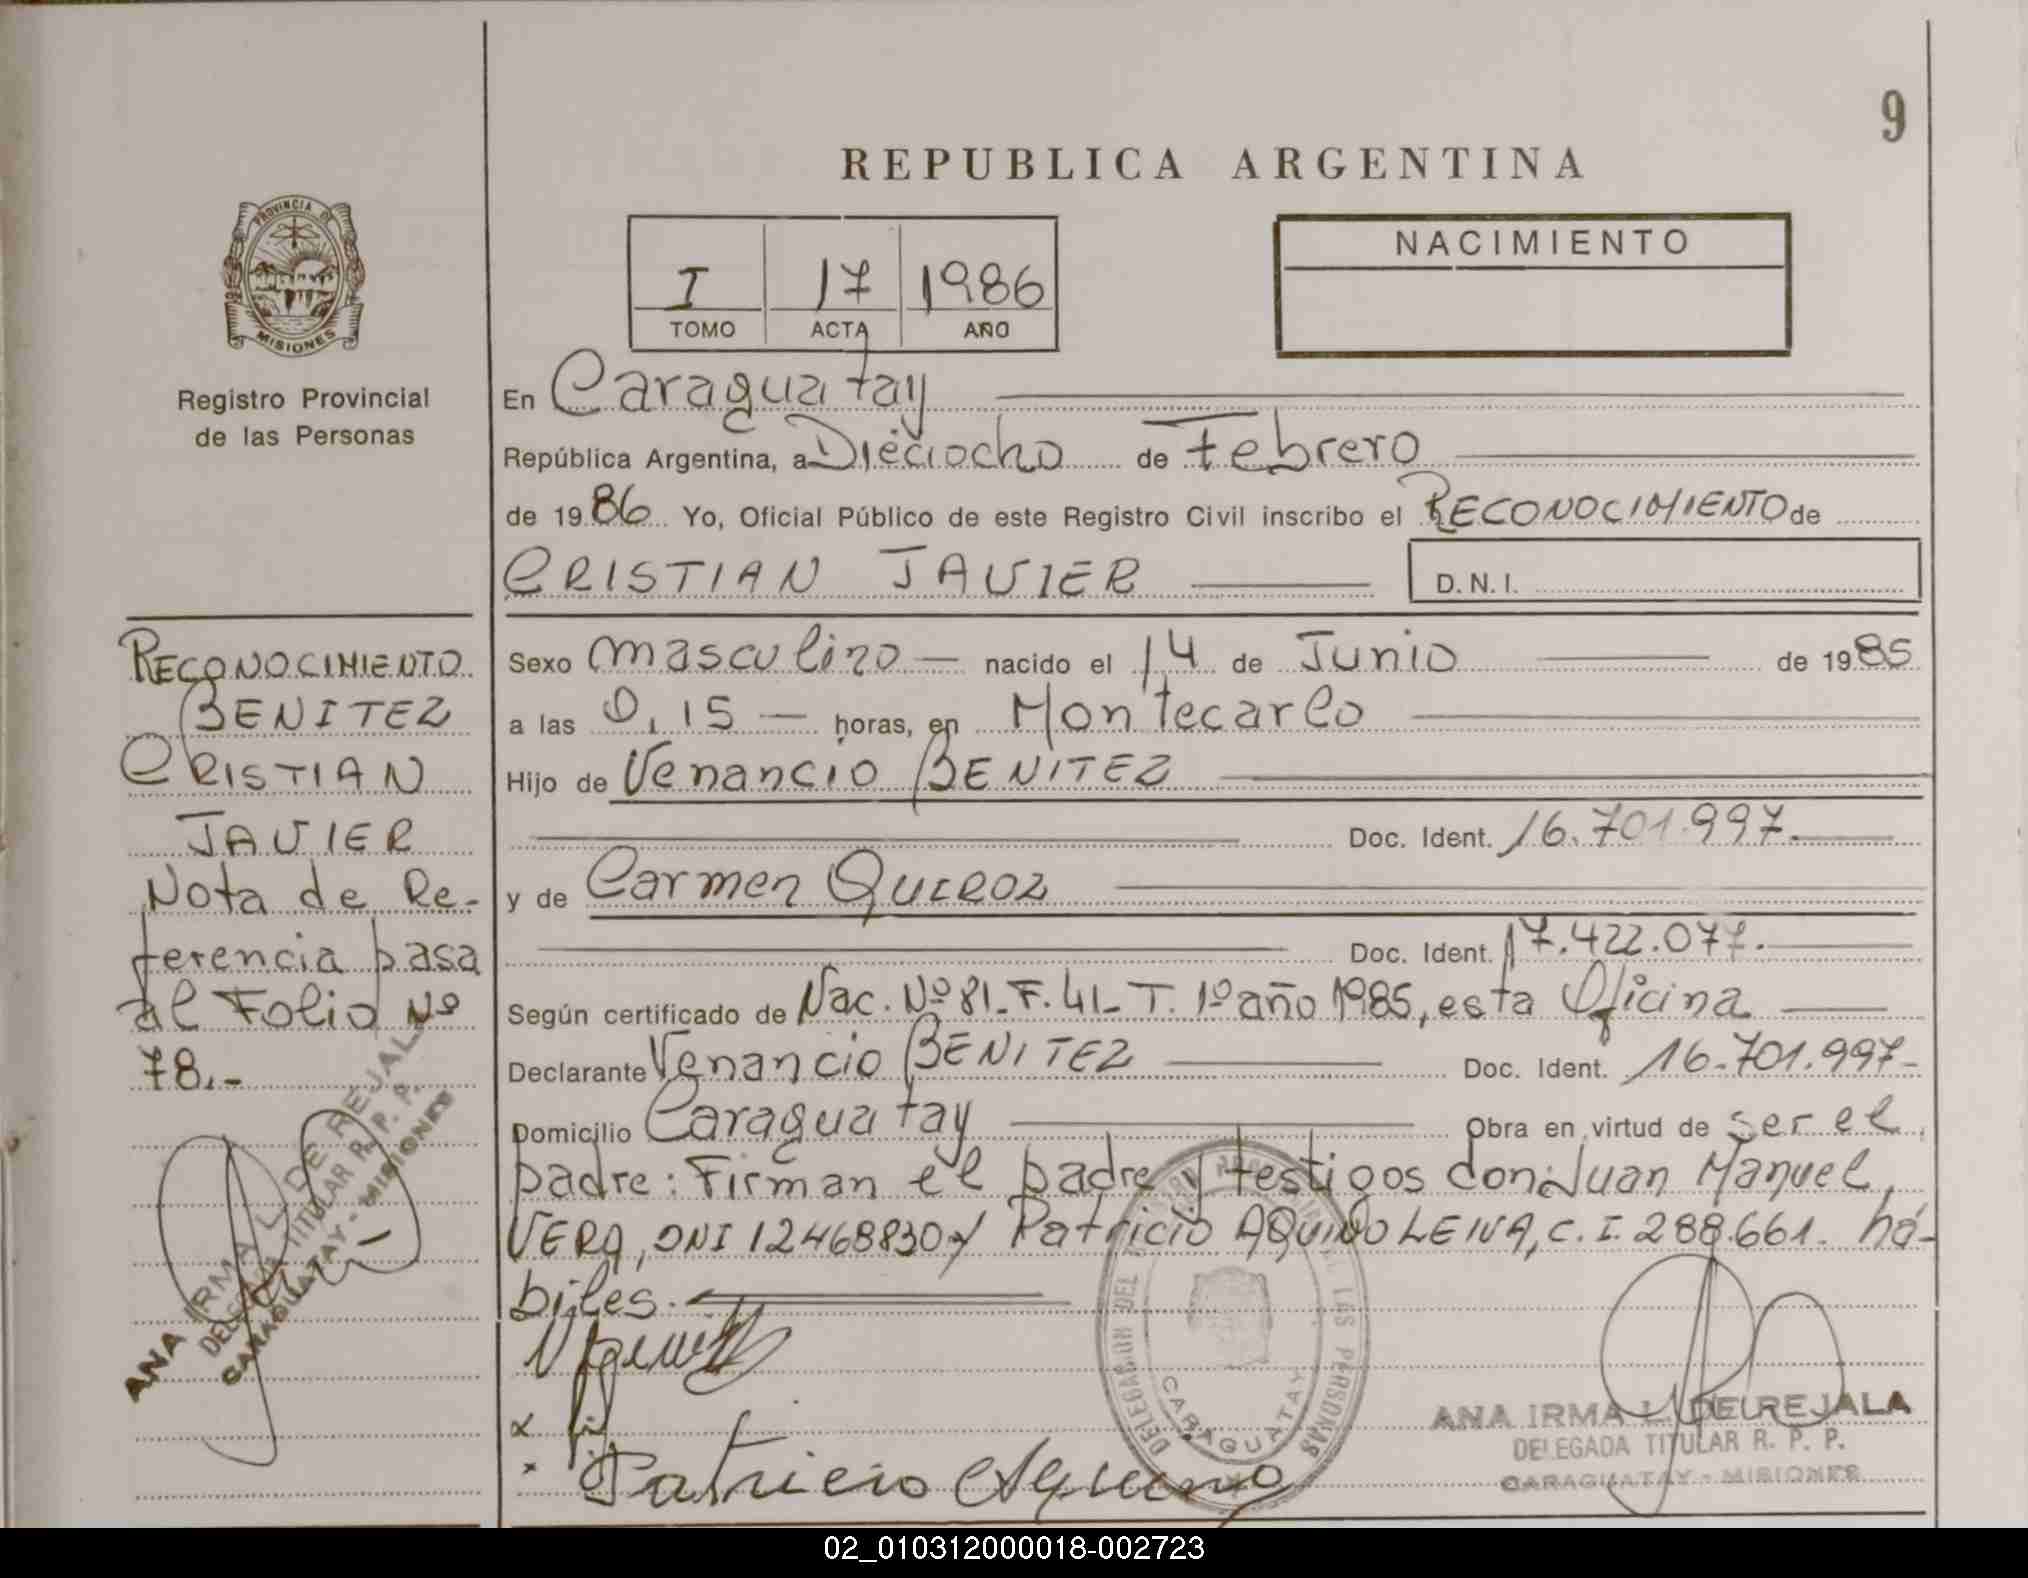 9
REPUBLICA ARGENTINA
PROVINCIA DE
MISIONES
Registro Provincial
de las Personas
I 17 1986
TOMO ACTA AÑO
NACIMIENTO
En Caraguatay
República Argentina, a Dieciocho de Febrero
de 1986 Yo, Oficial Público de este Registro Civil inscribo el RECONOCIMIENTO de
CRISTIAN JAVIER
D.N.I.
Sexo masculino nacido el 14 de Junio de 1985
a las 0,15 horas, en Montecarlo
Hijo de Venancio BENITEZ
Doc. Ident. 16.701.997.
y de Carmen QUIROZ
Doc. Ident. 17.422.077.
Según certificado de Nac. Nº 81-F. 41-T. 1º año 1985, esta Oficina
Declarante Venancio BENITEZ Doc. Ident. 16.701.997-
Domicilio Caraguatay Obra en virtud de ser el
padre: Firman el padre y testigos don: Juan Manuel
VERA, DNI 12468830 y Patricio AQUINO LEIVA, C.I. 288.661. há-
biles.
Patricio Aquino
DELEGACION DEL REGISTRO PROVINCIAL DE LAS PERSONAS
CARAGUATAY
ANA IRMA L. DE REJALA
DELEGADA TITULAR R. P. P.
CARAGUATAY - MISIONES
RECONOCIMIENTO
BENITEZ
CRISTIAN
JAVIER
Nota de Re-
ferencia pasa
al Folio Nº
78.-
ANA IRMA L. DE REJALA
DELEGADA TITULAR R. P. P.
CARAGUATAY - MISIONES
02_010312000018-002723